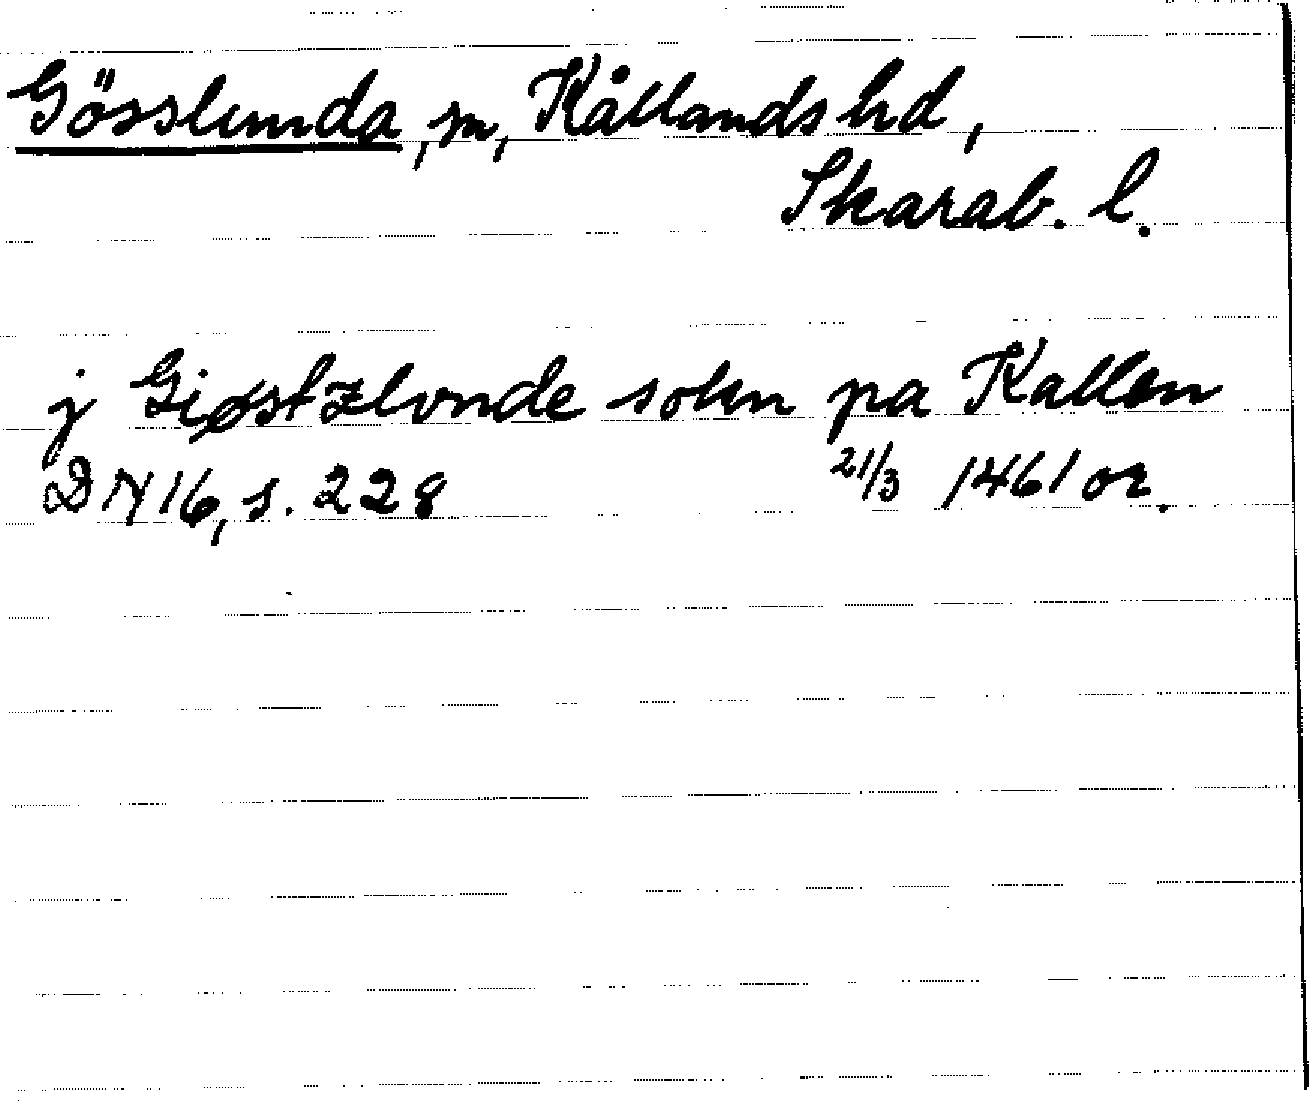 Gösslunda, sn, Kållands hd,
Skarab. l.
j Giøstzlvnde sokn pa Kallen
DN 16, s. 228 21/3 1461 or.